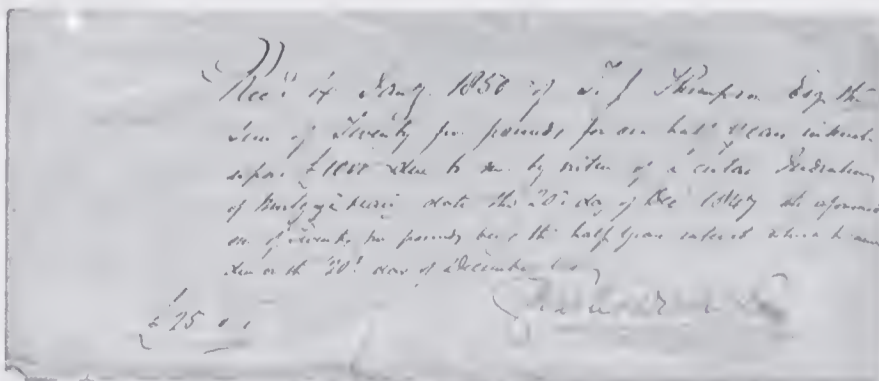 Rec'd 14 Jany. 1850 of T. J. Thompson Esq the
Sum of Twenty five pounds for one half years interest
upon £1000 due to me by virtue of a certain
of Mortgage bearing date the 20th day of Dec 1847 the aforesaid
sum of Twenty five pounds being the half years interest which became
due on the 20th day of December
£25 0 0